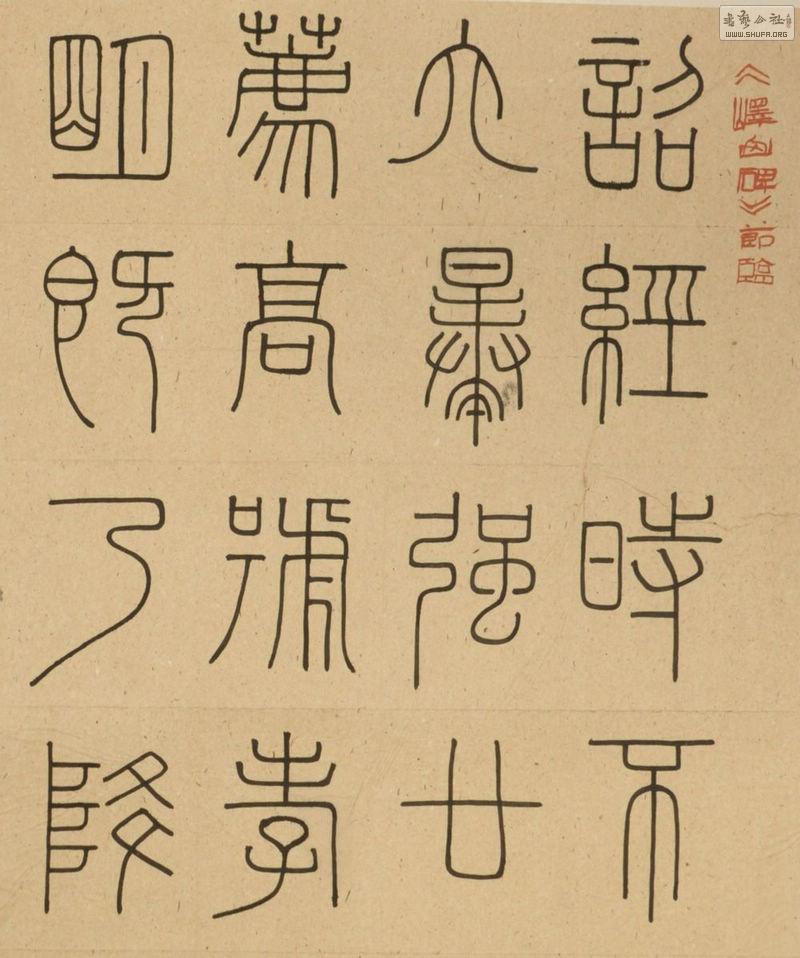 《嶧山碑》節臨
詔經時不
六暴强廿
薦高號孝
明既乃降
書藝公社
WWW.SHUFA.ORG